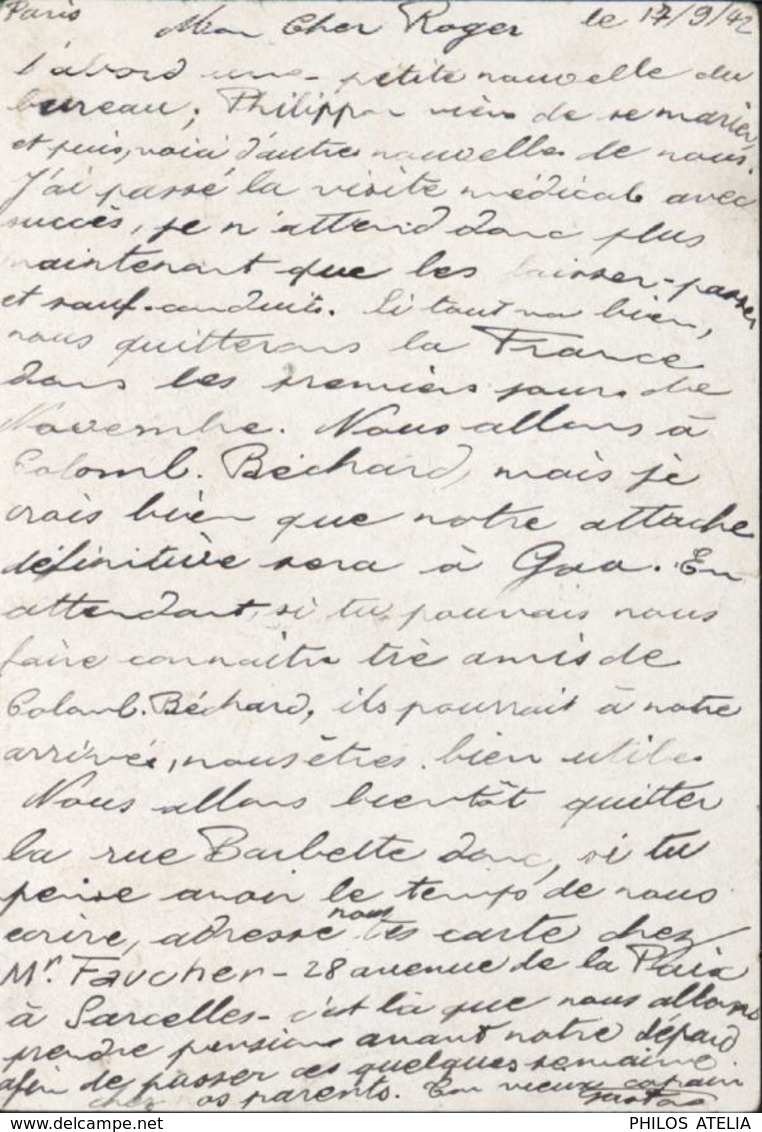 Paris le 17/9/42
Mon Cher Roger
d'abord une petite nouvelle du
bureau; Philippon vien de se marier,
et puis, voici d'autre nouvelle de nous.
J'ai passé la visite médicale avec
succès, je n'attend donc plus
maintenant que les laisser-passer
et sauf-conduit. Si tout va bien,
nous quitterons la France
dans les premiers jours de
Novembre. Nous allons à
Colomb. Béchard, mais je
crois bien que notre attache
définitive sera à Gao. En
attendant, si tu pourrais nous
faire connaitre tes amis de
Colomb. Béchard, ils pourrait à notre
arrivée, nous êtres bien utile.
Nous allons bientôt quitter
la rue Barbette donc, si tu
pense avoir le temps de nous
ecrire, adresse nous tes carte chez
Mr. Faucher - 28 avenue de la Paix
à Sarcelles - c'est là que nous allons
prendre pension avant notre départ
afin de passer ces quelques semaine
chez nos parents. Ton vieux copain
PHILOS ATELIA